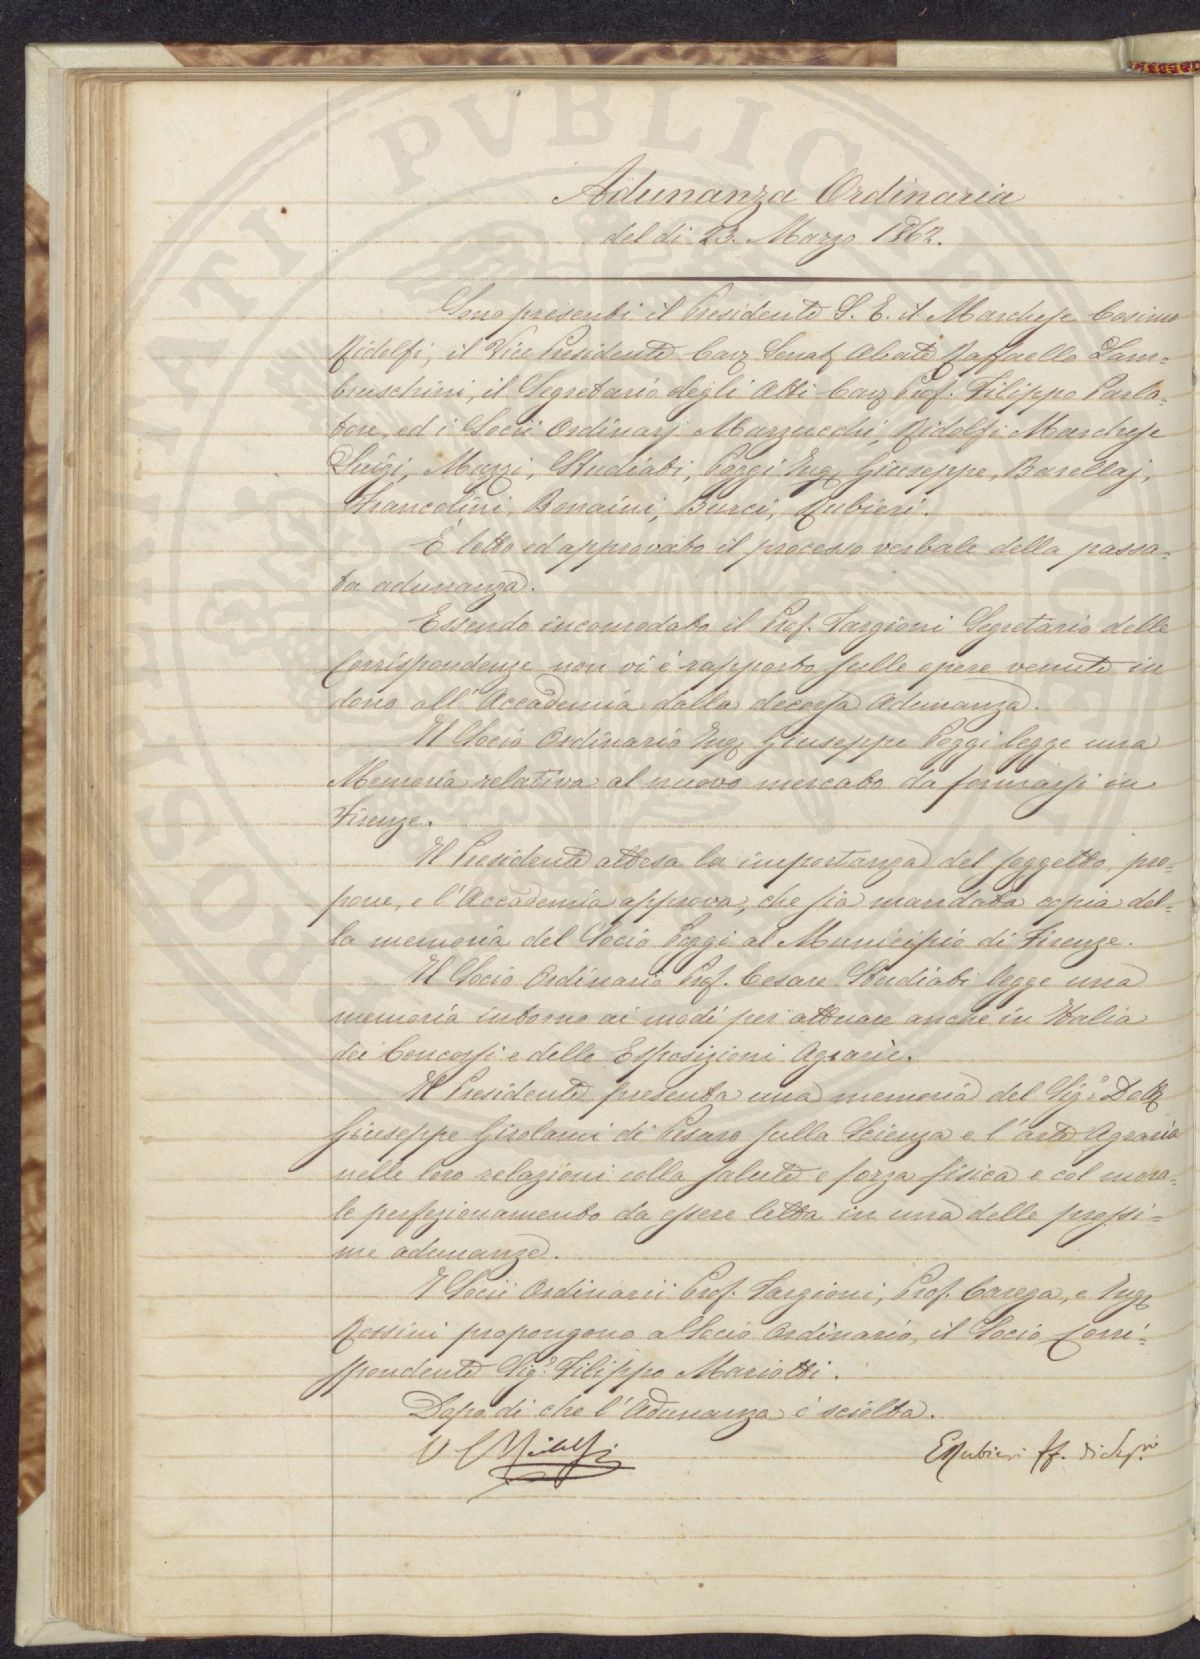 Adunanza Ordinaria
del di 23. Marzo 1862.
Sono presenti il Presidente S. E. il Marchese Cosimo
Ridolfi, il Vice Presidente Cav Senat Abate Raffaello Lam=
bruschini, il Segretario degli Atti Cav Prof. Filippo Parla=
tore, ed i Socii Ordinarj Marzucchi, Ridolfi Marchese
Luigi, Mazzi, Studiati, Poggi Ing Giuseppe, Barellaj,
Francolini, Bonaini, Burci, Rubieri.
È letto ed approvato il processo verbale della passa=
ta adunanza.
Essendo incomodato il Prof. Targioni Segretario delle
Corrispondenze non vi è rapporto sulle opere venute in
dono all'Accademia dalla decorsa Adunanza.
Il Socio Ordinario Ing Giuseppe Poggi legge una
Memoria relativa al nuovo mercato da formarsi in
Firenze.
Il Presidente attesa la importanza del soggetto, pro=
pone, e l'Accademia approva, che sia mandata copia del=
la memoria del Socio Poggi al Municipio di Firenze.
Il Socio Ordinario Prof. Cesare Studiati legge una
memoria intorno ai modi per attuare anche in Italia
dei Concorsi e delle Esposizioni Agrarie.
Il Presidente presenta una memoria del Sig.r Dott
Giuseppe Girolami di Pesaro sulla Scienza e l'arte Agraria
nelle loro relazioni colla salute e forza fisica e col mora=
le perfezionamento da essere letta in una delle prossi=
me adunanze.
I Socii Ordinarii Prof. Targioni, Prof. Carega, e Ing
Rossini propongono a Socio Ordinario, il Socio Corri=
spondente Sig.r Filippo Mariotti.
Dopo di che l'Adunanza è sciolta.
V C Ridolfi
E Rubieri ff. di Seg.rio
PVBLICAE